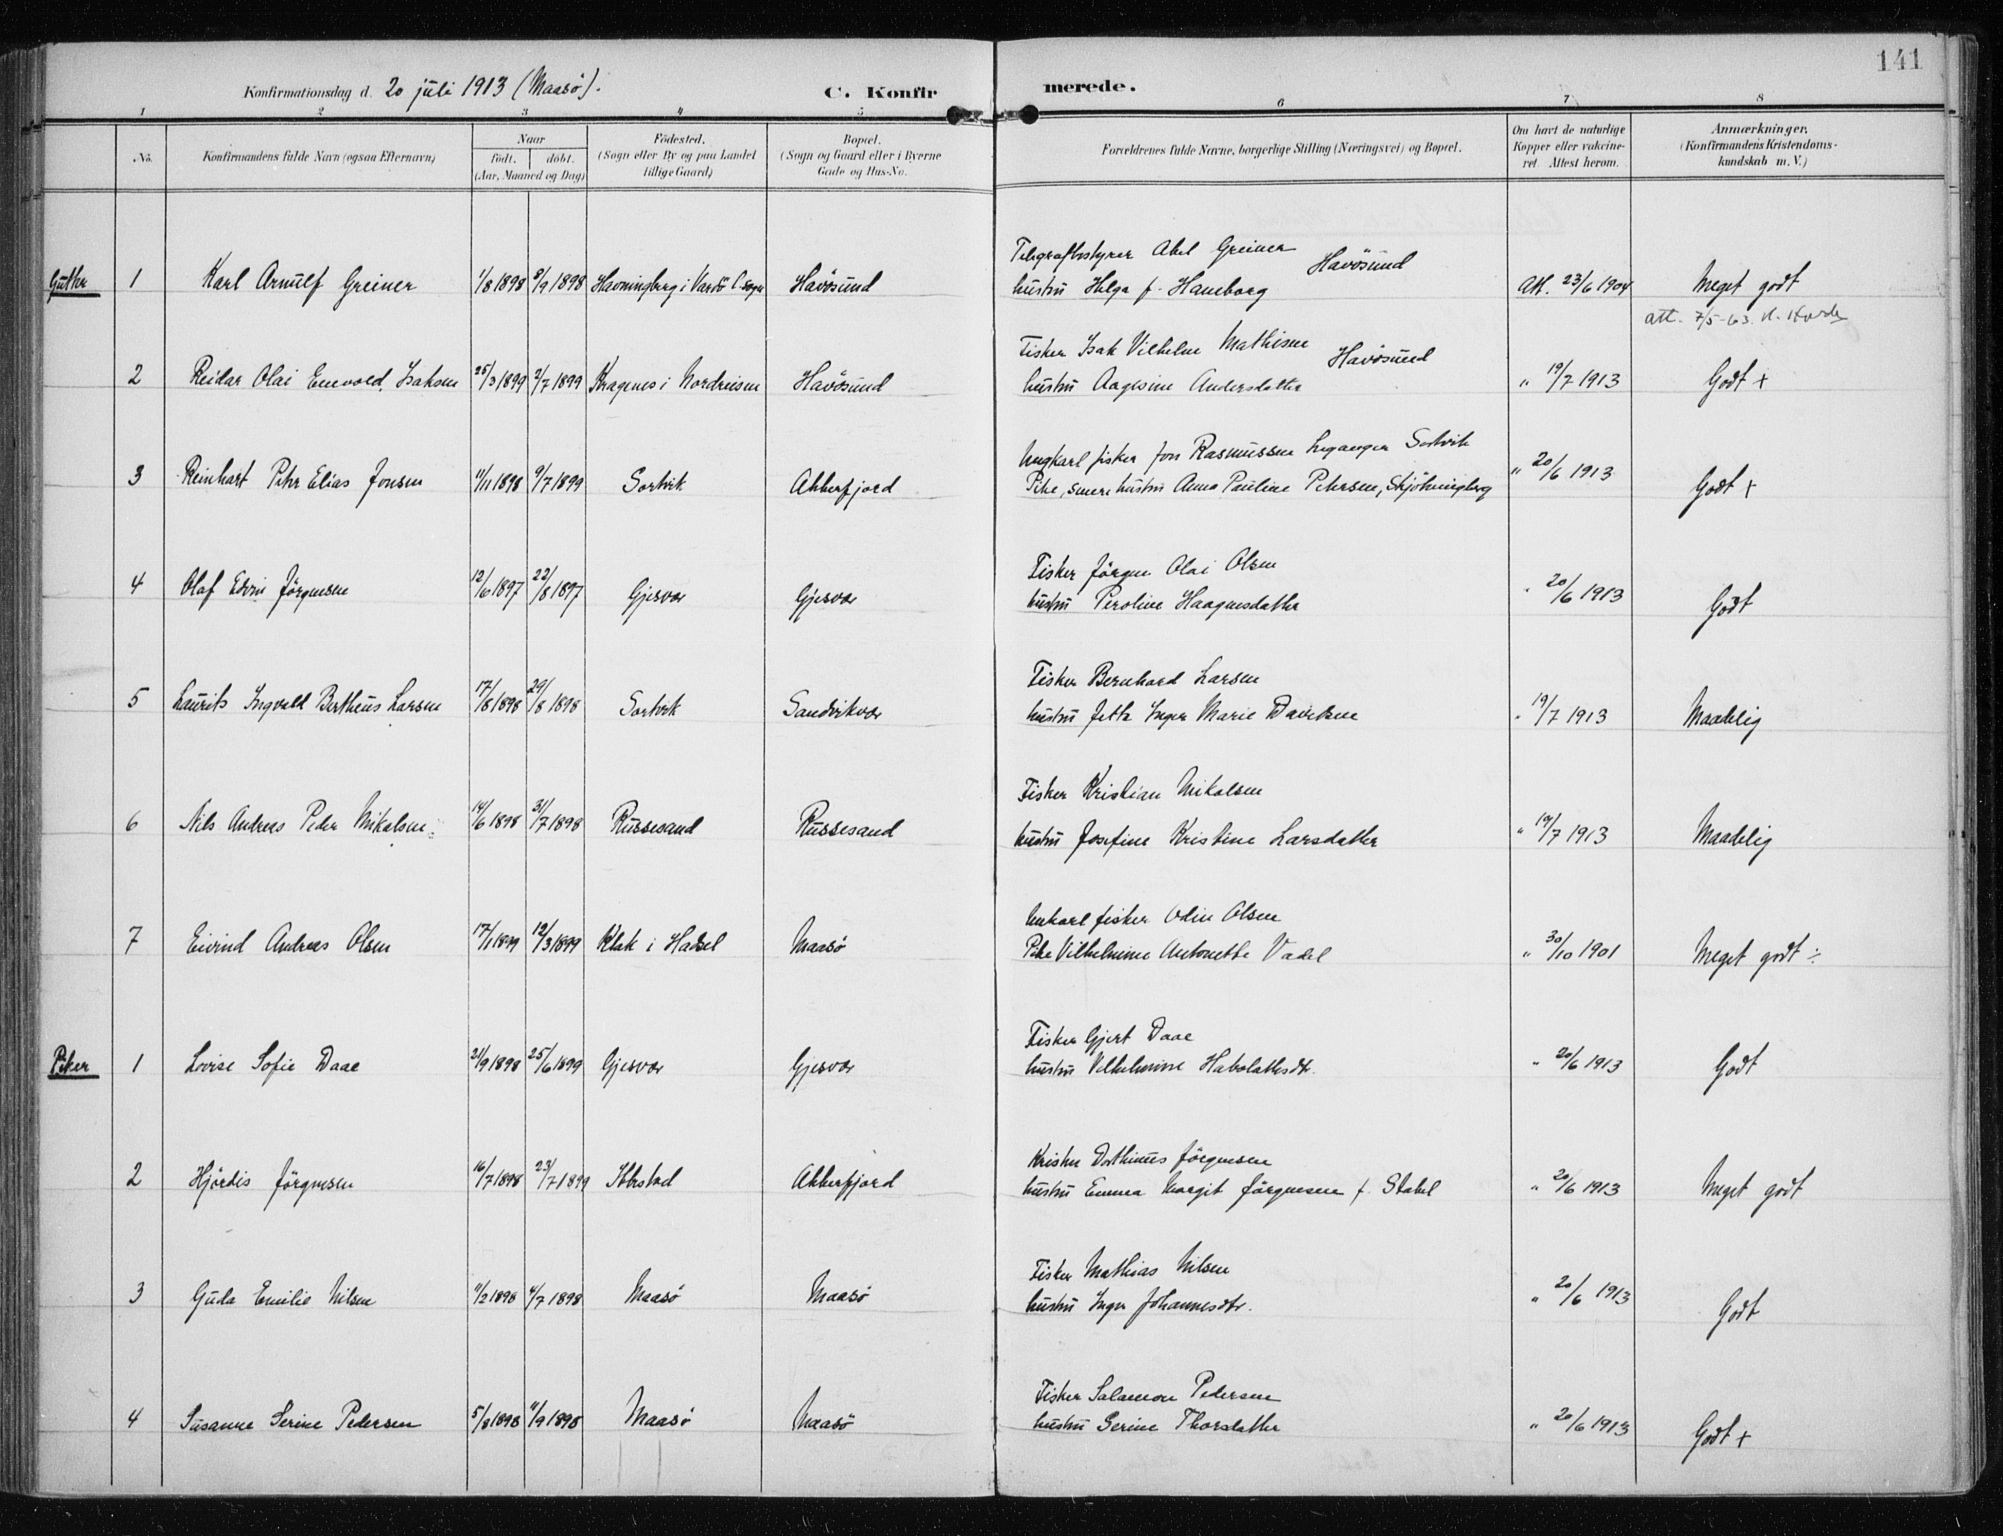 141
Konfirmationsdag d. 20 juli 1913 (Maasö).
C. Konfirmerede.
1 2 3 4 5 6 7 8
No.
Konfirmandens fulde Navn (ogsaa Efternavn)
Naar
født. døbt.
(Aar, Maaned og Dag)
Födested.
(Sogn eller By og paa Landet
tillige Gaard)
Bopæl.
(Sogn og Gaard eller i Byerne
Gade og Hus-No.
Forældrenes fulde Navne, borgerlige Stilling (Næringsvei) og Bopæl.
Om havt de naturlige
Kopper eller vakcine-
ret. Attest herom.
Anmærkninger.
(Konfirmandens Kristendoms-
kundskab m. V.)
Gutter
1 Karl Arnulf Greiner 1/8 1898 8/9 1898 Havningberg i Vardö l. sogn Havösund
Telegrafbestyrer Abel Greiner Havösund
hustru Helga f. Haneborg
Att. 23/6 1904 Meget godt
att. 7/5-63.
2 Reidar Olai Enevold Isaksen 25/3 1899 2/7 1899 Kragenes i Nordreisen Havösund
Fisker Isak Vilhelm Mathisen Havösund
hustru Aagesine Andersdatter
" 19/7 1913 Godt +
3 Reinhart Peter Elias Jonsen 11/11 1898 9/7 1899 Sortvik Akkerfjord
Ungkarl fisker Jon Rasmussen Sortvik
Pike, senere hustru Anna Pauline Petersen, Skjötningberg
" 20/6 1913 Godt +
4 Olaf Edvin Jörgensen 12/6 1897 22/8 1897 Gjesvær Gjesvær
Fisker Jörgen Olai Olsen
hustru Peroline Haagensdatter
" 20/6 1913 Godt
5 Laurits Ingvald Bertheus Larsen 17/8 1898 29/8 1898 Sortvik Sandvikvær
Fisker Bernhard Larsen
hustru Jetta Inger Marie Davidsen
" 19/7 1913 Maadelig
6 Nils Andreas Peder Mikalsen 14/6 1898 31/7 1898 Russesand Russesand
Fisker Kristian Mikalsen
hustru Josefine Kristine Larsdatter
" 19/7 1913 Maadelig
7 Eivind Andreas Olsen 17/1 1899 12/3 1899 Klak i Hadsel Maasö
Unkarl fisker Odin Olsen
Pike Vilhelmine Antonette Vadel
" 30/10 1901 Meget godt ÷
Piker
1 Lovise Sofie Daae 21/9 1898 25/6 1899 Gjesvær Gjesvær
Fisker Gjert Daae
hustru Vilhelmine
" 20/6 1913 Godt
2 Hjördis Jörgensen 16/7 1898 23/7 1899 Ibbestad Akkerfjord
Kristen Dorthinus Jörgensen
hustru Emma Margit Jörgensen f. Stabel
" 20/6 1913 Meget godt
3 Guda Emilie Nilsen 11/2 1898 4/7 1898 Maasö Maasö
Fisker Mathias Nilsen
hustru Inger Johannesdtr.
" 20/6 1913 Godt
4 Susanne Serine Pedersen 5/8 1898 11/9 1898 Maasö Maasö
Fisker Salamon Pedersen
hustru Serine Thorsdatter
" 20/6 1913 Godt +